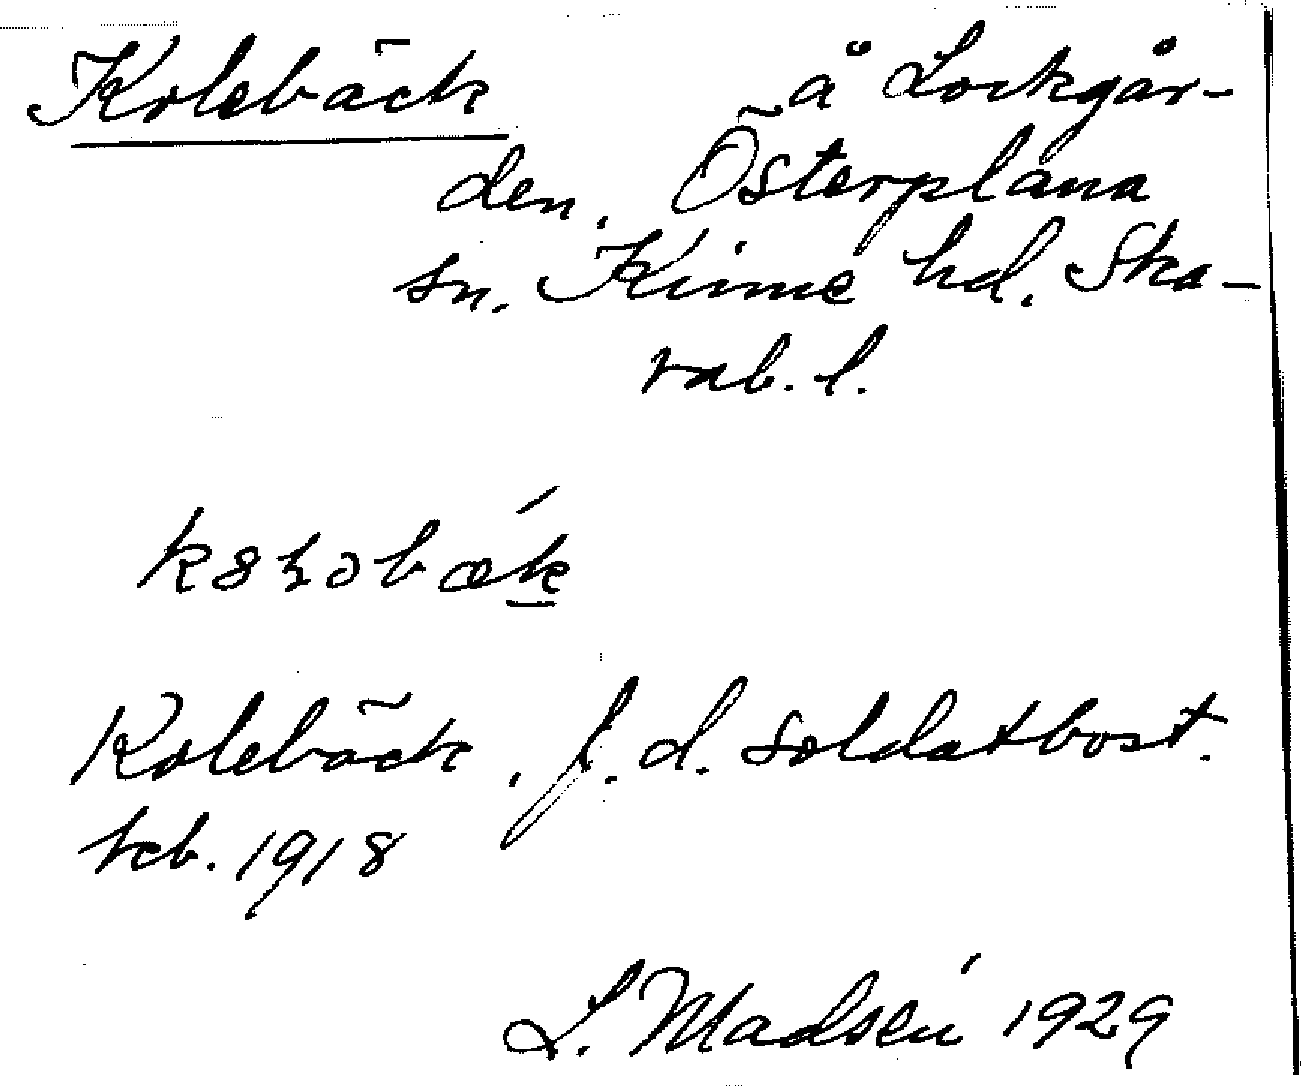 Kolebäck å Lockgår-
den, Österplana
sn. Kinne hd. Ska-
rab. l.
Kolebäck, f. d. soldatbost.
beb. 1918
L. Madsén 1929